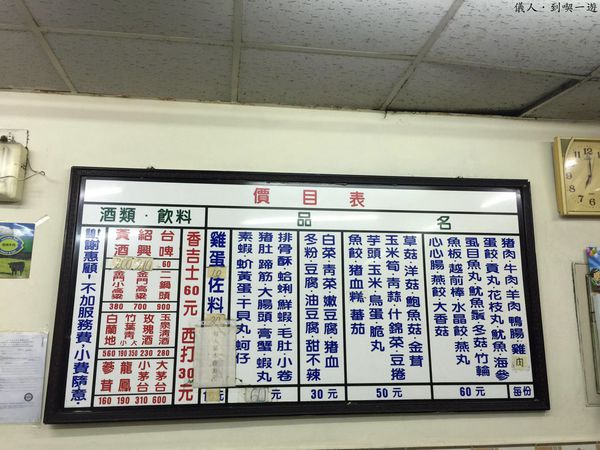 儀人‧到喫一遊
價目表
品名
每份
豬肉‧牛肉‧羊肉‧鴨腸‧雞肉
蛋餃‧貢丸‧花枝丸‧魷魚‧海參
虱目魚丸‧魷魚鬚‧冬菇‧竹輪
魚板‧越前棒‧水晶餃‧燕丸
心心腸‧燕餃‧大香菇
60元
草菇‧洋菇‧鮑魚菇‧金茸
玉米筍‧青蒜‧什錦菜‧豆捲
芋頭‧玉米‧鳥蛋‧脆丸
魚餃‧豬血糕‧蕃茄
50元
白菜‧青菜‧嫩豆腐‧豬血
冬粉‧豆腐‧油豆腐‧甜不辣
30元
排骨酥‧蛤蜊‧鮮蝦‧毛肚‧小卷
豬肚‧蹄筋‧大腸頭‧膏蟹‧蝦丸
素蝦‧蚧黃蛋‧干貝丸‧蚵仔
60元
雞蛋
佐料
元
酒類‧飲料
香吉士60元 西打30元
台啤
紹興
黃酒
二鍋頭 900
金門小高粱 700
金門小高粱 380
玉泉清酒 280
玫瑰酒 230
竹葉青 大 小 350 190
白蘭地 560
大茅台 600
小茅台 310
龍鳳 190
蔘茸 160
謝謝惠顧，不加服務費‧小費隨意‧